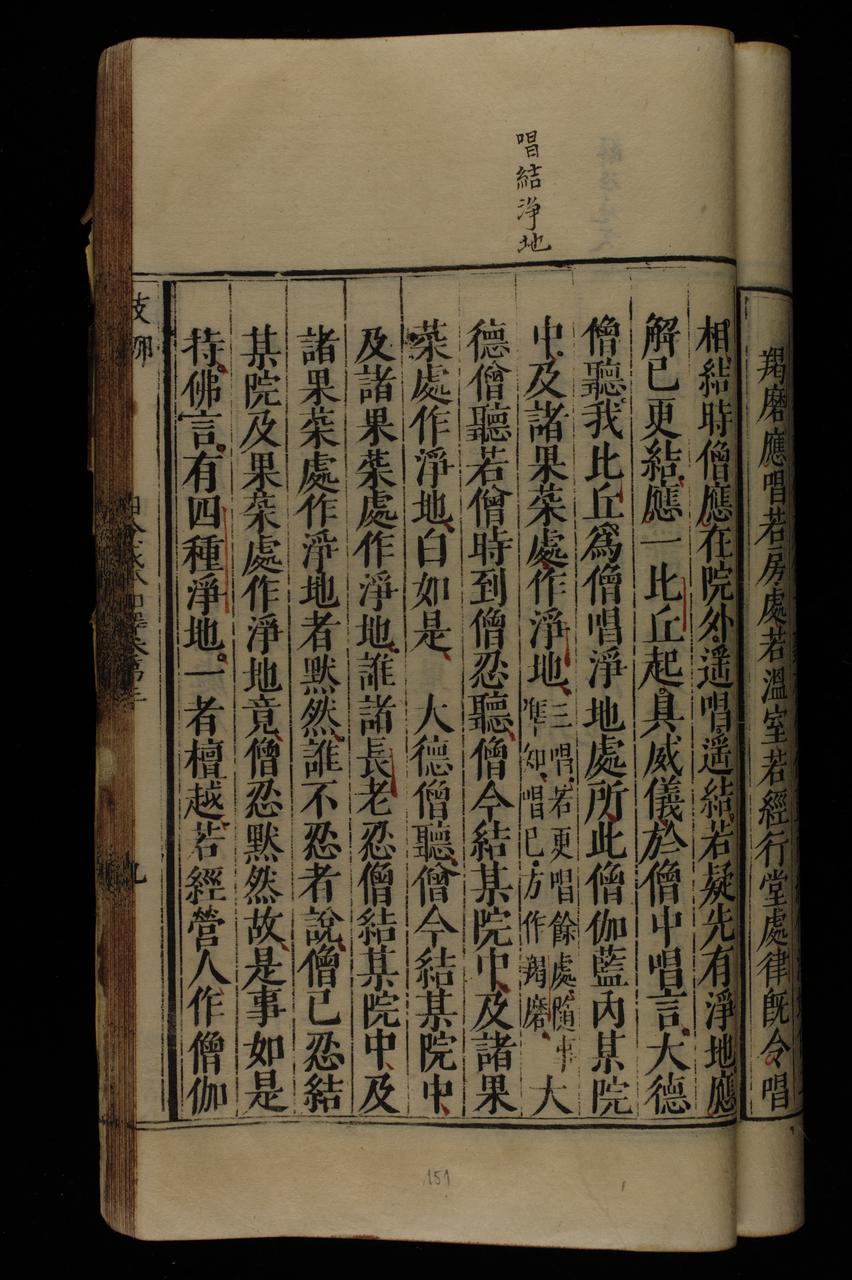 羯磨應唱若房處若溫室若經行堂處律既令唱
唱結淨地
相結時僧應在院外遥唱遥結若疑先有淨地應
解已更結應一比丘起具威儀於僧中唱言大德
僧聽我比丘爲僧唱淨地處所此僧伽藍內某院
中及諸果菜處作淨地三唱若更唱餘處隨事準知唱已方作羯磨大
德僧聽若僧時到僧忍聽僧今結某院中及諸果
菜處作淨地白如是 大德僧聽僧今結某院中
及諸果菜處作淨地誰諸長老忍僧結某院中及
諸果菜處作淨地者默然誰不忍者說僧已忍結
某院及果菜處作淨地竟僧忍默然故是事如是
持佛言有四種淨地一者檀越若經營人作僧伽
九
151